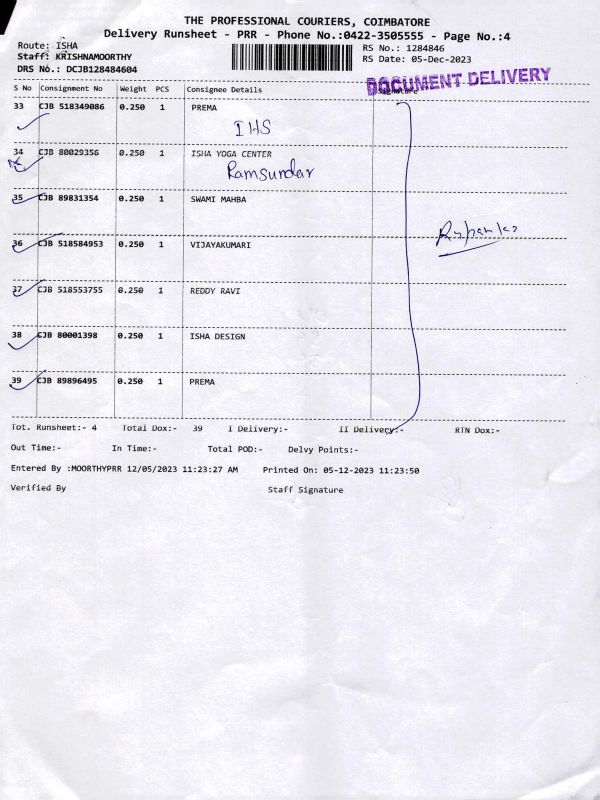 THE PROFESSIONAL COURIERS, COIMBATORE
Delivery Runsheet - PRR - Phone No.:0422-3505555 - Page No.:4
Route: ISHA
Staff: KRISHNAMOORTHY
DRS No.: DCJB128484604
RS No.: 1284846
RS Date: 05-Dec-2023
DOCUMENT DELIVERY
S No Consignment No Weight PCS Consignee Details Signature
33 CJB 518349086 0.250 1 PREMA
IHS
34 CJB 80029356 0.250 1 ISHA YOGA CENTER
Ramsundar
35 CJB 89831354 0.250 1 SWAMI MAHBA
36 CJB 518584953 0.250 1 VIJAYAKUMARI
37 CJB 518553755 0.250 1 REDDY RAVI
38 CJB 80001398 0.250 1 ISHA DESIGN
39 CJB 89896495 0.250 1 PREMA
Tot. Runsheet:- 4 Total Dox:- 39 I Delivery:- II Delivery:- RTN Dox:-
Out Time:- In Time:- Total POD:- Delvy Points:-
Entered By :MOORTHYPRR 12/05/2023 11:23:27 AM Printed On: 05-12-2023 11:23:50
Verified By Staff Signature